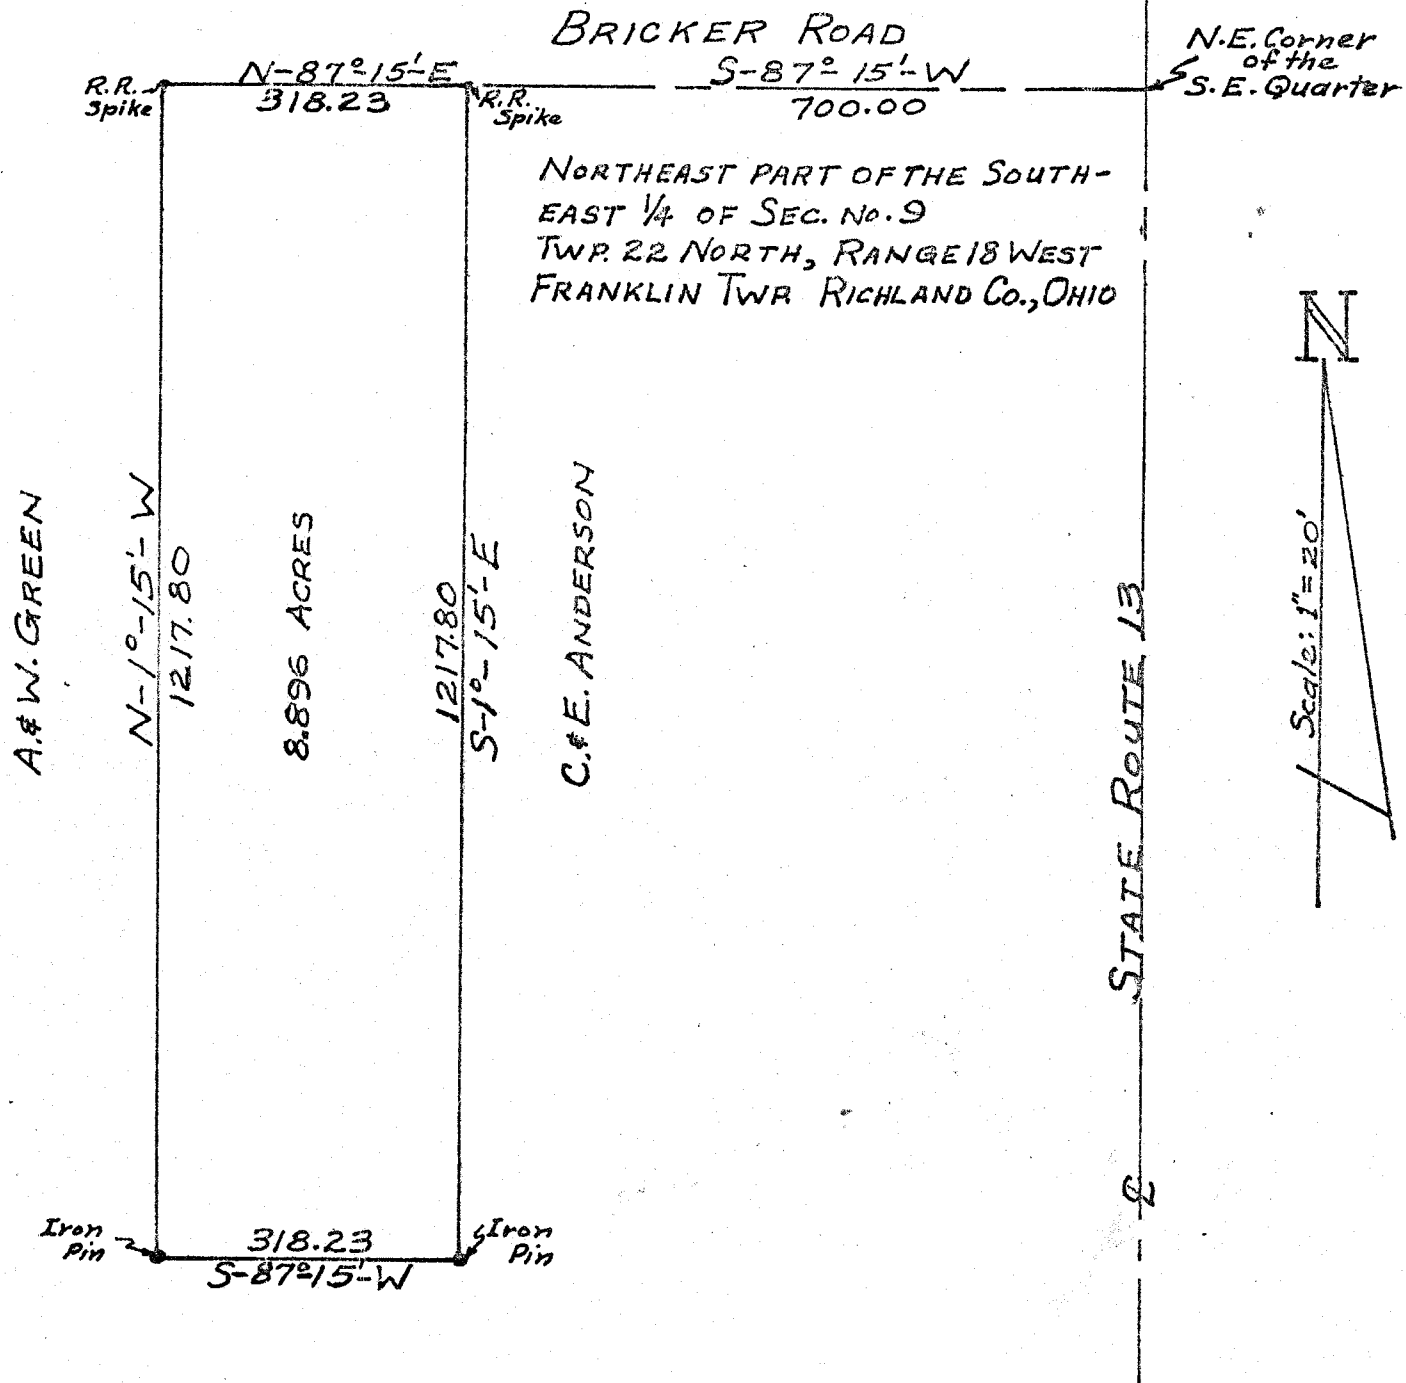 BRICKER ROAD
N.E. Corner
of the
S.E. Quarter
R.R.
Spike
N-87°-15'-E
318.23
R.R.
Spike
S-87°-15'-W
700.00
NORTHEAST PART OF THE SOUTH-
EAST 1/4 OF SEC. NO. 9
TWP. 22 NORTH, RANGE 18 WEST
FRANKLIN TWP. RICHLAND CO., OHIO
N
Scale: 1"=20'
A. & W. GREEN
N-1°-15'-W
1217.80
8.896 ACRES
1217.80
S-1°-15'-E
C. & E. ANDERSON
STATE ROUTE 13
℄
Iron
Pin
318.23
S-87°-15'-W
Iron
Pin